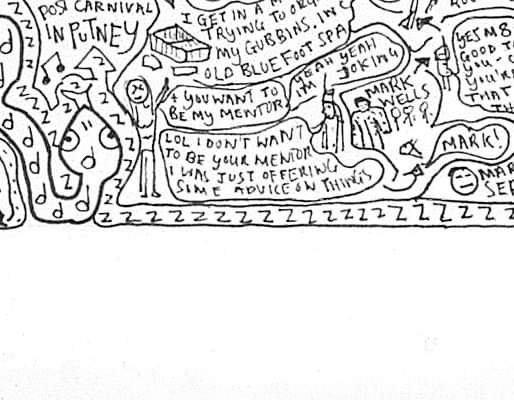 POST CARNIVAL
IN PUTNEY
I GET IN A M
TRYING TO ORG
MY GUBBINS. IN
OLD BLUE FOOT SPA
+ YOU WANT TO
BE MY MENTOR
YEAH YEAH
I'M JOKING
LOL I DON'T WANT
TO BE YOUR MENTOR
I WAS JUST OFFERING
SOME ADVICE ON THINGS
MARK
WELLS
YES M8
GOOD TO
YOU
YOU'RE
THAT
TH
MARK!
MAR
SER
Z Z Z Z Z Z Z Z Z Z Z Z Z Z Z Z Z Z Z Z Z